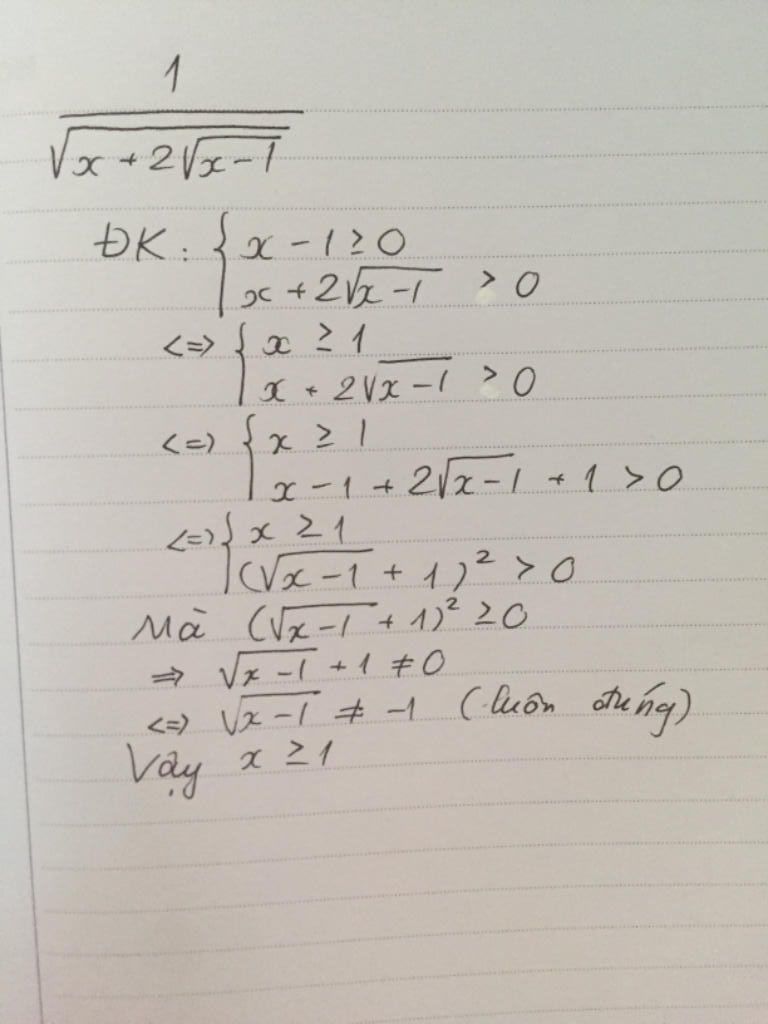 1
√(x + 2√(x-1))
ĐK: { x - 1 ≥ 0
x + 2√(x-1) > 0
<=> { x ≥ 1
x + 2√(x-1) > 0
<=> { x ≥ 1
x - 1 + 2√(x-1) + 1 > 0
<=> { x ≥ 1
(√(x-1) + 1)² > 0
Mà (√(x-1) + 1)² ≥ 0
=> √(x-1) + 1 ≠ 0
<=> √(x-1) ≠ -1 (luôn đúng)
Vậy x ≥ 1